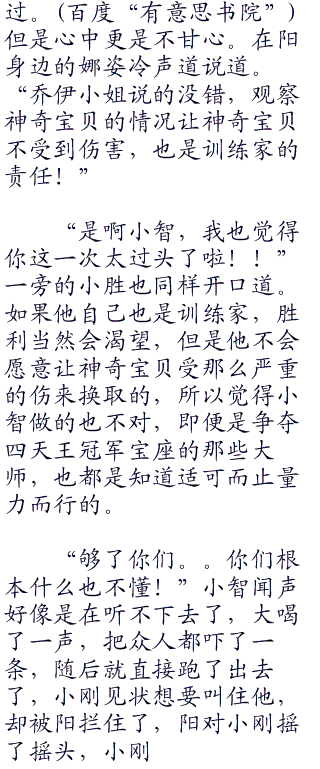 过。(百度“有意思书院”)
但是心中更是不甘心。在阳
身边的娜姿冷声道说道。
“乔伊小姐说的没错，观察
神奇宝贝的情况让神奇宝贝
不受到伤害，也是训练家的
责任！”
“是啊小智，我也觉得
你这一次太过头了啦！！”
一旁的小胜也同样开口道。
如果他自己也是训练家，胜
利当然会渴望，但是他不会
愿意让神奇宝贝受那么严重
的伤来换取的，所以觉得小
智做的也不对，即便是争夺
四天王冠军宝座的那些大
师，也都是知道适可而止量
力而行的。
“够了你们。。你们根
本什么也不懂！”小智闻声
好像是在听不下去了，大喝
了一声，把众人都吓了一
条，随后就直接跑了出去
了，小刚见状想要叫住他，
却被阳拦住了，阳对小刚摇
了摇头，小刚